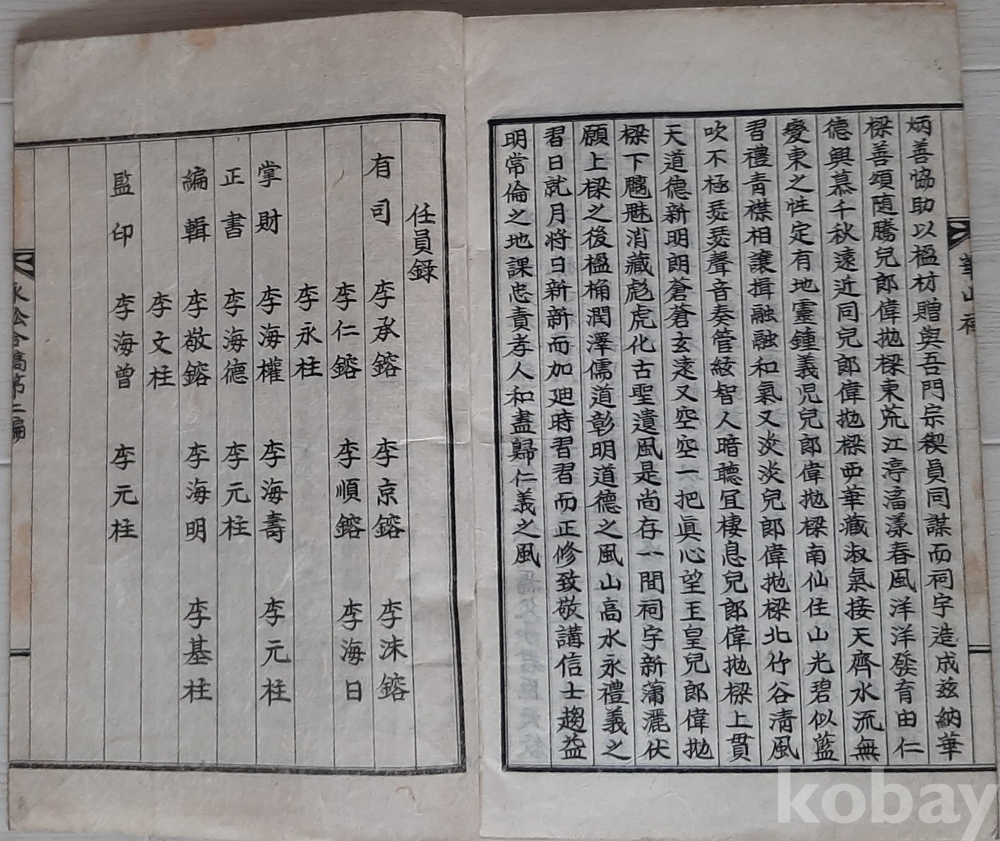 炳善恊助以楹材贈與吾門宗稧員同謀而祠宇造成玆納華
樑善頌随騰兒郎偉拋樑東荒江亭畐漾春風洋洋發育由仁
德興慕千秋遠近同兒郎偉拋樑西華藏淑氣接天齊水流無
變東之性定有地靈鍾義児兒郎偉拋樑南仙住山光碧似藍
習禮青襟相讓揖融融和氣又淡淡兒郎偉拋樑北竹谷清風
吹不極瑟瑟聲音奏管絃智人暗聽冝棲息兒郎偉拋樑上貫
天道德新明朗蒼蒼玄遠又空空一把眞心望王皇兒郎偉拋
樑下魑魅消藏彪虎化古聖遺風是尚存一間祠宇新蒲灑伏
願上樑之後楹桷潤澤儒道彰明道德之風山高水永禮義之
習日就月將日新新而加廸時習習而正修致敬講信士趨益
明常倫之地課忠責孝人和盡歸仁義之風
華山祠
任員錄
有司 李承鎔 李京鎔 李洙鎔
李仁鎔 李順鎔 李海日
李永柱
掌財 李海權 李海壽 李元柱
正書 李海德 李元柱
編輯 李敬鎔 李海明 李基柱
李文柱
監印 李海曾 李元柱
合稿第二編
kobay